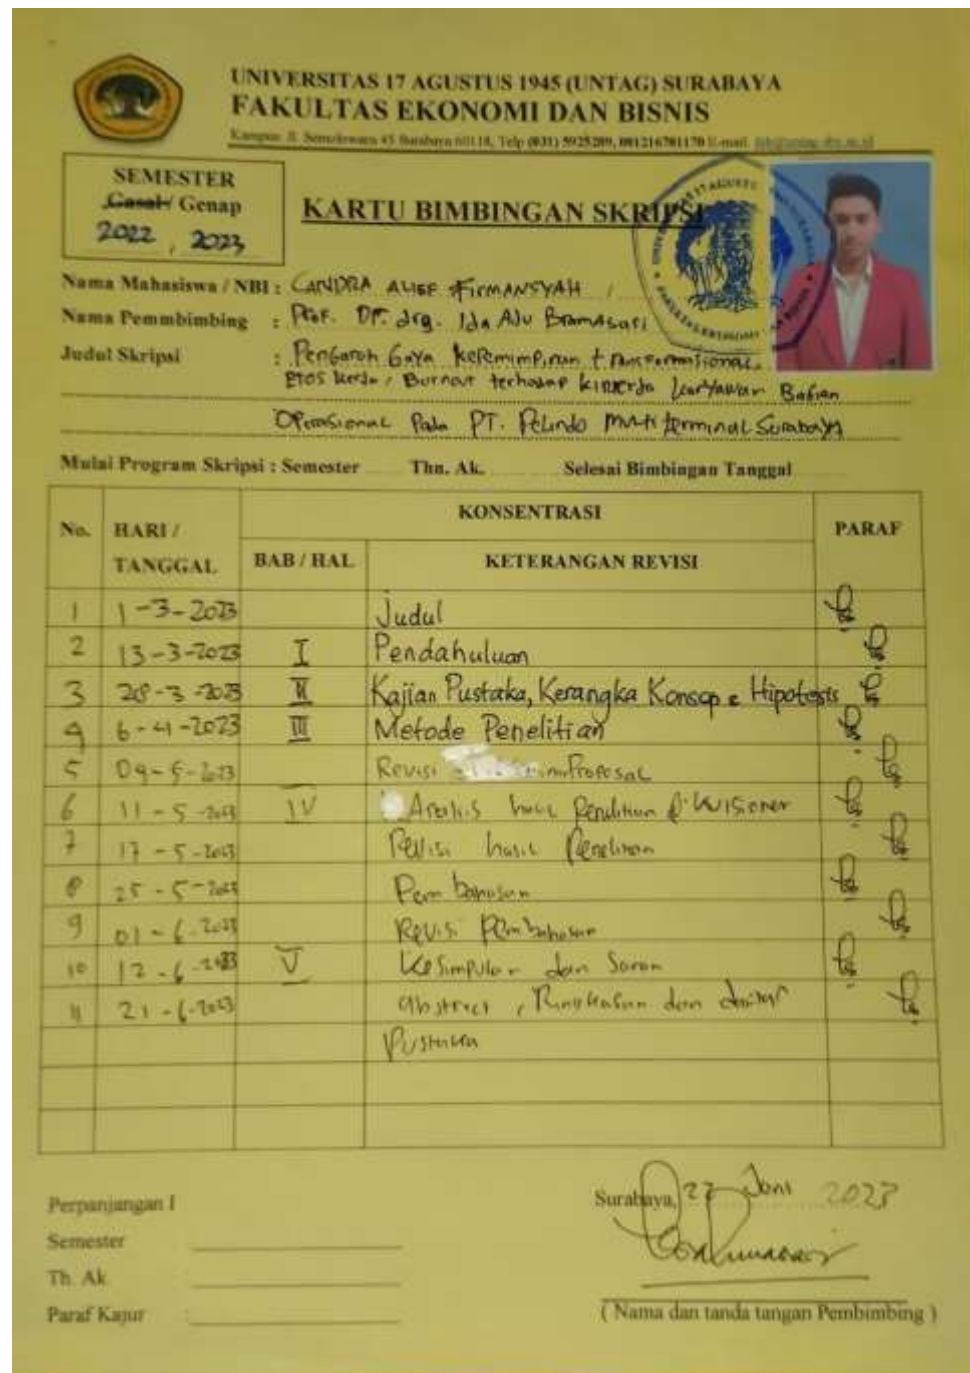 UNIVERSITAS 17 AGUSTUS 1945 (UNTAG) SURABAYA
FAKULTAS EKONOMI DAN BISNIS
Kampus: Jl. Semolowaru 45 Surabaya 60118, Telp (031) 5925289, 081216781170 E-mail
SEMESTER
Gasal / Genap
2022, 2023
KARTU BIMBINGAN SKRIPSI
Nama Mahasiswa / NBI : CANDRA ALIEF FIRMANSYAH /
Nama Pemmbimbing : Prof. Dr. drg. Ida Aju Bramasari
Judul Skripsi : Pengaroh Gaya Kepemimpinan transformasional,
Etos Kerja, Burnout terhadap kinerja karyawan Bagian
Operasional Pada PT. Pelindo Multi terminal Surabaya
Mulai Program Skripsi : Semester Thn. Ak. Selesai Bimbingan Tanggal
No. HARI / TANGGAL KONSENTRASI PARAF
BAB / HAL KETERANGAN REVISI
1 1-3-2023 Judul
2 13-3-2023 I Pendahuluan
3 28-3-2023 II Kajian Pustaka, Kerangka Konsep & Hipotesis
4 6-4-2023 III Metode Penelitian
5 09-5-2023 Revisi Proposal
6 11-5-2023 IV Analisis hasil Penelitian & Kuisioner
7 17-5-2023 Revisi hasil Penelitian
8 25-5-2023 Pembahasan
9 01-6-2023 Revisi Pembahasan
10 12-6-2023 V Kesimpulan dan Saran
11 21-6-2023 abstract, Ringkasan dan daftar
Pustaka
Perpanjangan I
Semester
Th. Ak
Paraf Kajur
Surabaya, 22 Juni 2023
( Nama dan tanda tangan Pembimbing )